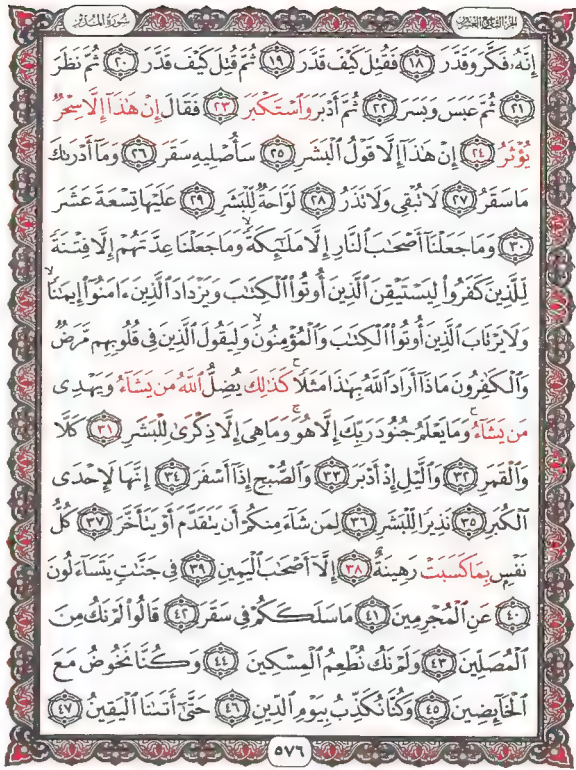 سُورَةُ المُدَّثِّر الجزء التاسع والعشرون
إِنَّهُۥ فَكَّرَ وَقَدَّرَ ١٨ فَقُتِلَ كَيْفَ قَدَّرَ ١٩ ثُمَّ قُتِلَ كَيْفَ قَدَّرَ ٢٠ ثُمَّ نَظَرَ
٢١ ثُمَّ عَبَسَ وَبَسَرَ ٢٢ ثُمَّ أَدْبَرَ وَٱسْتَكْبَرَ ٢٣ فَقَالَ إِنْ هَٰذَآ إِلَّا سِحْرٌ
يُؤْثَرُ ٢٤ إِنْ هَٰذَآ إِلَّا قَوْلُ ٱلْبَشَرِ ٢٥ سَأُصْلِيهِ سَقَرَ ٢٦ وَمَآ أَدْرَىٰكَ
مَا سَقَرُ ٢٧ لَا تُبْقِى وَلَا تَذَرُ ٢٨ لَوَّاحَةٌ لِّلْبَشَرِ ٢٩ عَلَيْهَا تِسْعَةَ عَشَرَ
٣٠ وَمَا جَعَلْنَآ أَصْحَٰبَ ٱلنَّارِ إِلَّا مَلَٰٓئِكَةًۙ وَمَا جَعَلْنَا عِدَّتَهُمْ إِلَّا فِتْنَةً
لِّلَّذِينَ كَفَرُوا۟ لِيَسْتَيْقِنَ ٱلَّذِينَ أُوتُوا۟ ٱلْكِتَٰبَ وَيَزْدَادَ ٱلَّذِينَ ءَامَنُوٓا۟ إِيمَٰنًاۙ
وَلَا يَرْتَابَ ٱلَّذِينَ أُوتُوا۟ ٱلْكِتَٰبَ وَٱلْمُؤْمِنُونَۙ وَلِيَقُولَ ٱلَّذِينَ فِى قُلُوبِهِم مَّرَضٌ
وَٱلْكَٰفِرُونَ مَاذَآ أَرَادَ ٱللَّهُ بِهَٰذَا مَثَلًاۚ كَذَٰلِكَ يُضِلُّ ٱللَّهُ مَن يَشَآءُ وَيَهْدِى
مَن يَشَآءُۚ وَمَا يَعْلَمُ جُنُودَ رَبِّكَ إِلَّا هُوَۚ وَمَا هِىَ إِلَّا ذِكْرَىٰ لِلْبَشَرِ ٣١ كَلَّا
وَٱلْقَمَرِ ٣٢ وَٱلَّيْلِ إِذْ أَدْبَرَ ٣٣ وَٱلصُّبْحِ إِذَآ أَسْفَرَ ٣٤ إِنَّهَا لَإِحْدَى
ٱلْكُبَرِ ٣٥ نَذِيرًا لِّلْبَشَرِ ٣٦ لِمَن شَآءَ مِنكُمْ أَن يَتَقَدَّمَ أَوْ يَتَأَخَّرَ ٣٧ كُلُّ
نَفْسٍۭ بِمَا كَسَبَتْ رَهِينَةٌ ٣٨ إِلَّآ أَصْحَٰبَ ٱلْيَمِينِ ٣٩ فِى جَنَّٰتٍ يَتَسَآءَلُونَ
٤٠ عَنِ ٱلْمُجْرِمِينَ ٤١ مَا سَلَكَكُمْ فِى سَقَرَ ٤٢ قَالُوا۟ لَمْ نَكُ مِنَ
ٱلْمُصَلِّينَ ٤٣ وَلَمْ نَكُ نُطْعِمُ ٱلْمِسْكِينَ ٤٤ وَكُنَّا نَخُوضُ مَعَ
ٱلْخَآئِضِينَ ٤٥ وَكُنَّا نُكَذِّبُ بِيَوْمِ ٱلدِّينِ ٤٦ حَتَّىٰٓ أَتَىٰنَا ٱلْيَقِينُ ٤٧
٥٧٦